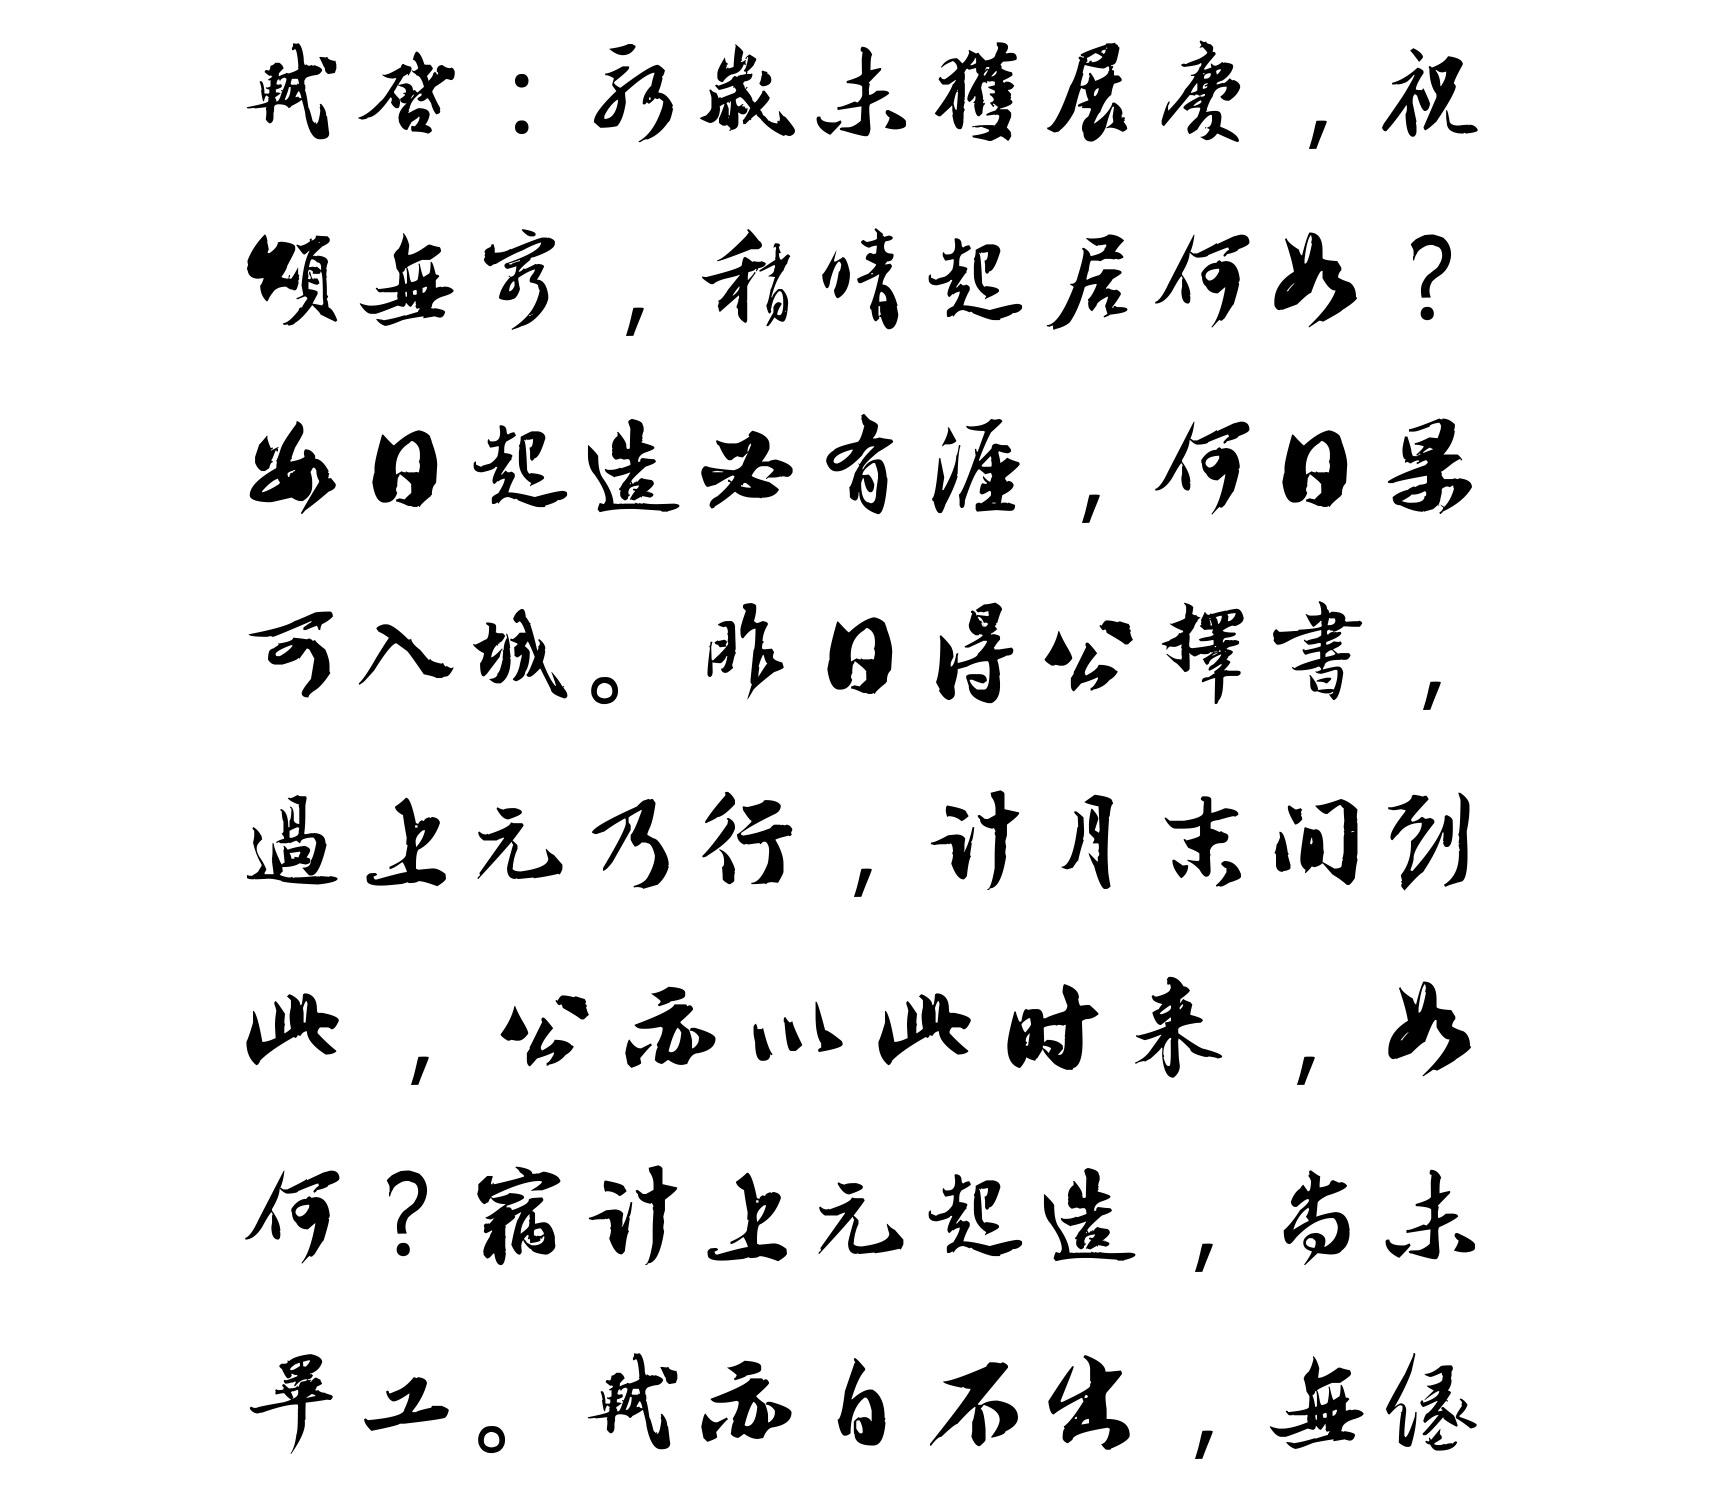 軾啓：新歲未獲展慶，祝
頌無窮，稍晴起居何如？
數日起造必有涯，何日果
可入城。昨日得公擇書，
過上元乃行，计月末间到
此，公亦以此时来，如
何？竊计上元起造，尚未
畢工。軾亦自不出，無緣